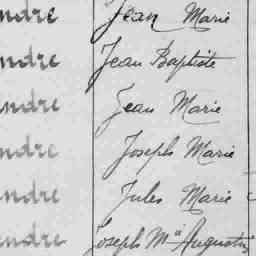 ndre Jean Marie
ndre Jean Baptiste
ndre Jean Marie
ndre Joseph Marie
ndre Jules Marie
endre Joseph M^ie Augustin